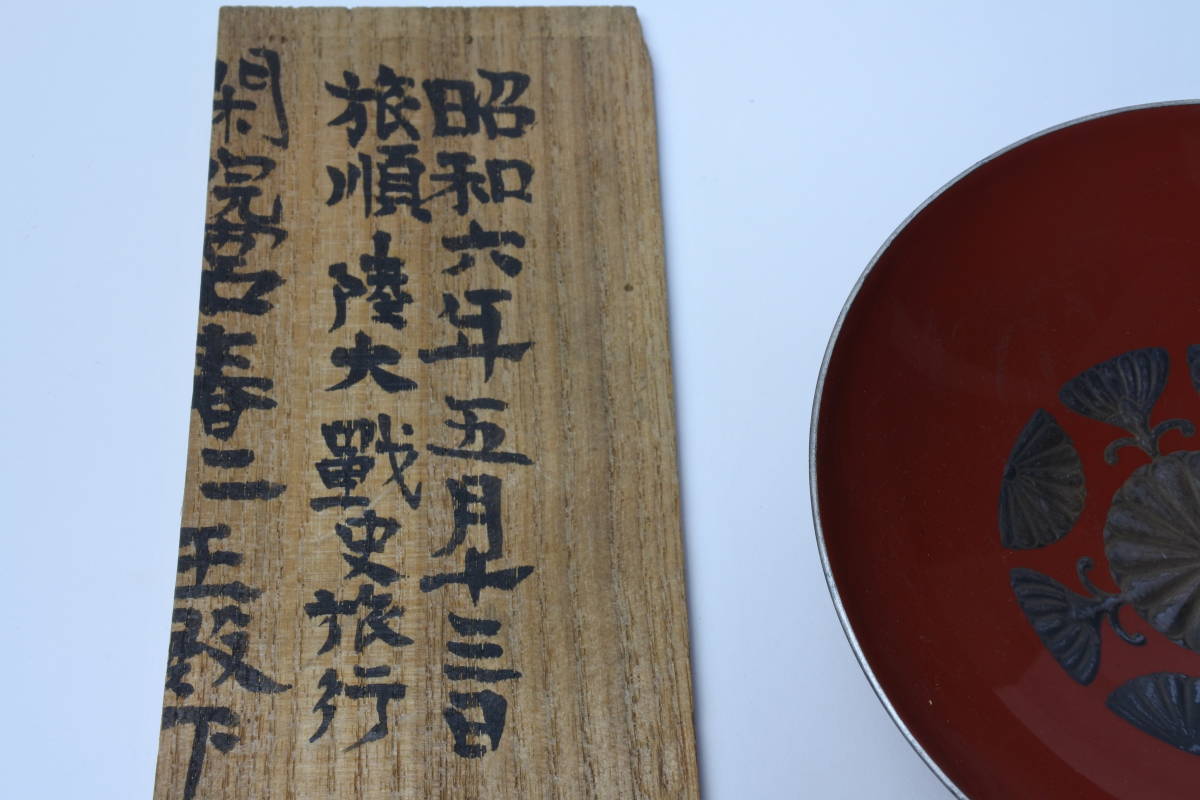 昭和六年五月十三日
旅順陸大戰史旅行
閑院宮春二王殿下